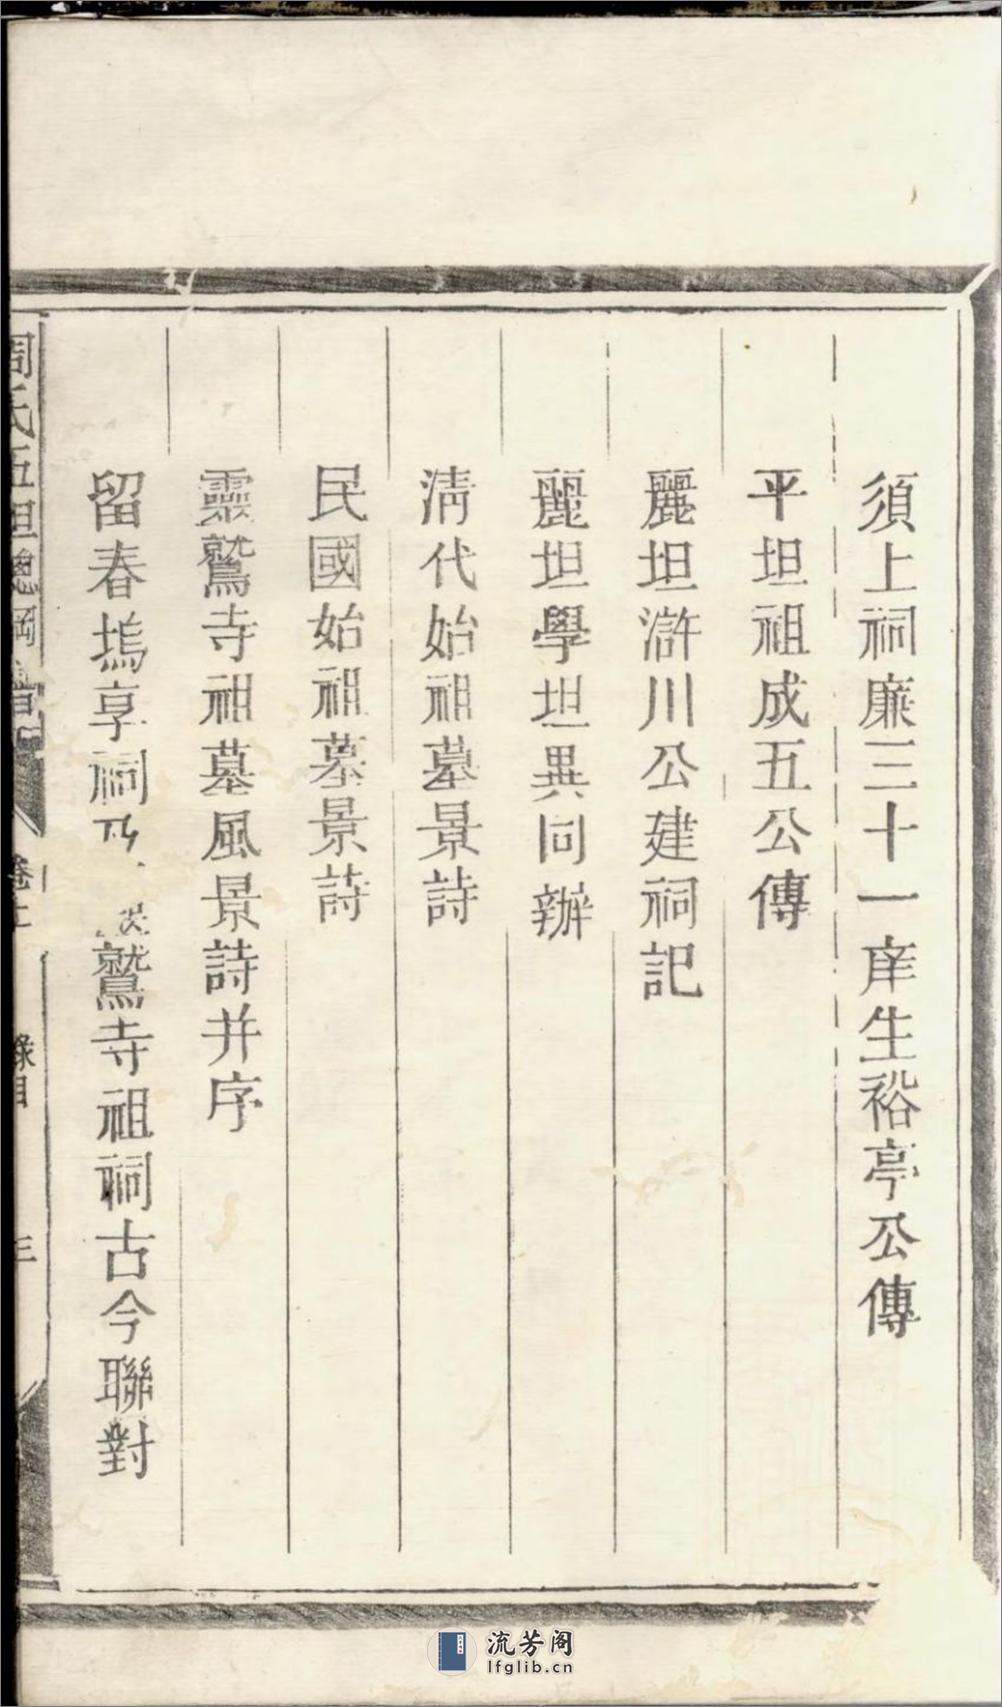 須上祠廉三十一庠生裕亭公傳
平坦祖成五公傳
麗坦滸川公建祠記
麗坦學坦異同辦
淸代始祖墓景詩
民國始祖墓景詩
靈鷲寺祖墓風景詩并序
留春塢享祠鷲寺祖祠古今聯對
周氏五坦總綱譜
卷上
錄目
三
流芳阁
lfglib.cn